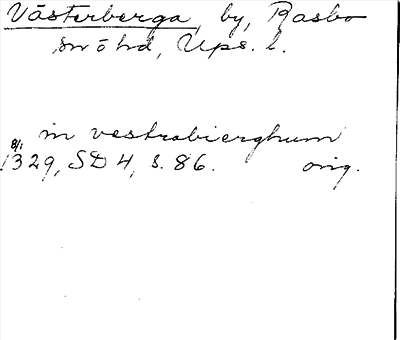 Västerberga, by, Rasbo
sn o hd, Ups. l.
in vestrabierghum
8/1 1329, SD 4, s. 86. orig.